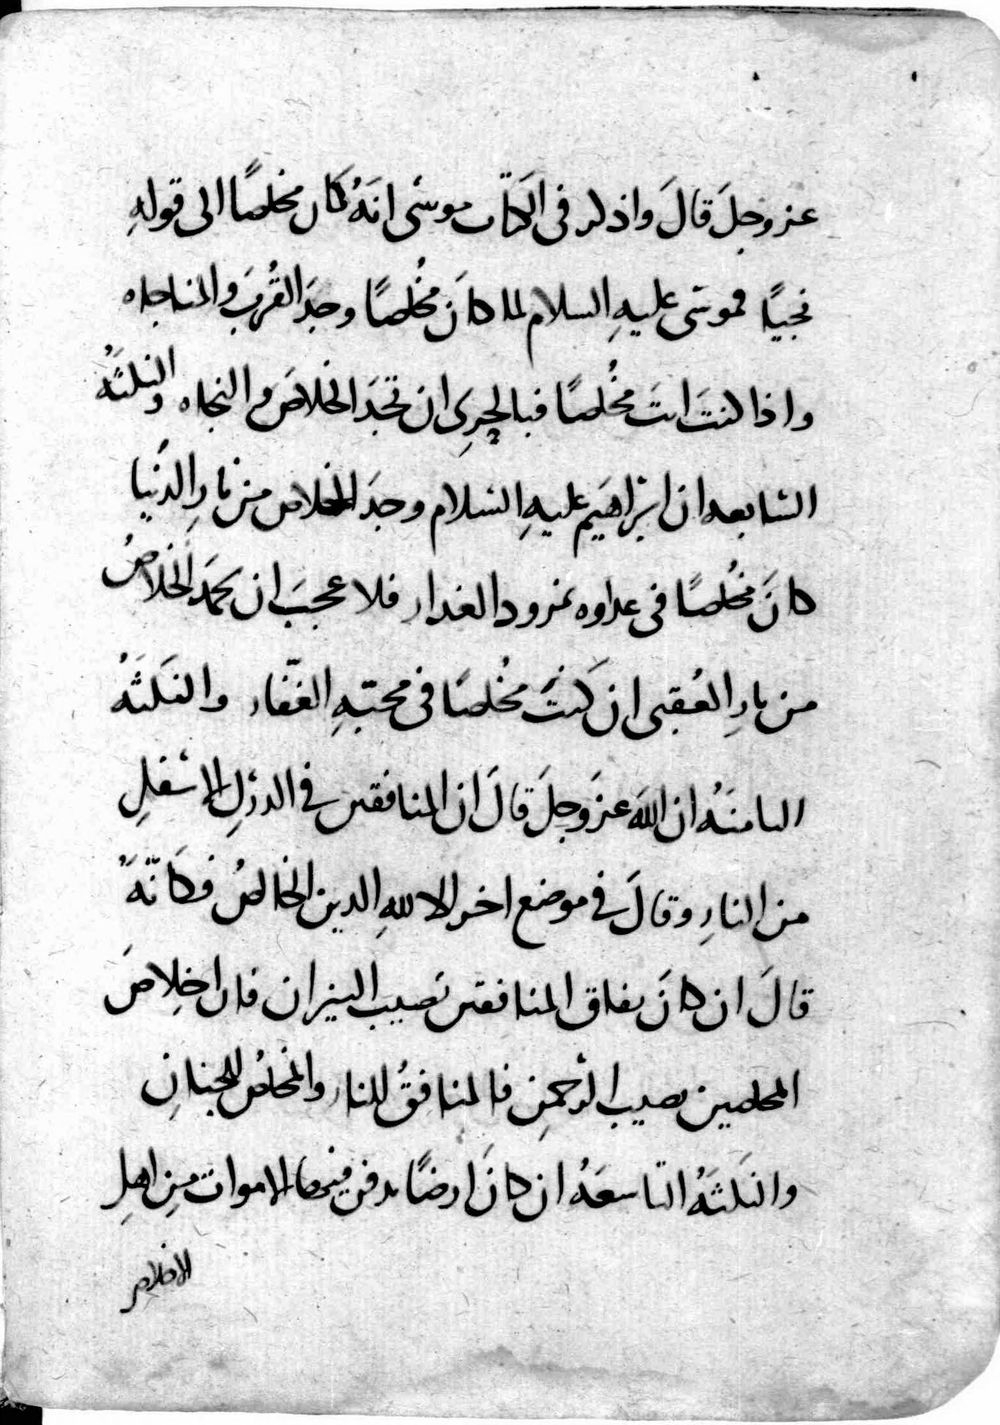 عز وجلَ قالَ واذكر فى الكتاب موسَى انَهُ كان مخلصًا الى قولهِ
نجيًا فموسَى عليهِ السلام لما كانَ مخُلصًا وجدَ القُربَ والمناجاه
واذا كنتَ انتَ مخُلصًا فبالحِرِى ان تجدَ الخلاصَ والنجاه والنكتَهُ
السَابعه ان ابرْاهيَم عليهِ السَلام وجدَ الخلاص من نارِ الدُنيا
كانَ مخُلصًا فى عداوه نمرود الغدار فلا عجبَ ان تجدَ الخلاصُ
من نارِ العُقبى ان كنتَ مخُلصًا فى محبتهِ الغفّار والنَكتَهُ
الثامنَهُ ان اللهَ عزَ وجلَ قالَ ان المنافقين فى الدرْكِ الاسْفلِ
من النارِ وقالَ فى موضع اخر الا للهِ الدين الخالصُ فكانّهَُ
قالَ ان كانَ نفاق المنافقين نصيب النيران فان اخِلاصَ
المخلصين نصيب الرْحمنِ فالمنافقُ للنار والمخلصُ للجنانِ
والنَكتَهُ التاسعَهُ ان كانَ ارضًا يدفن فيها الاموات مِن اهلِ
الاخلاص